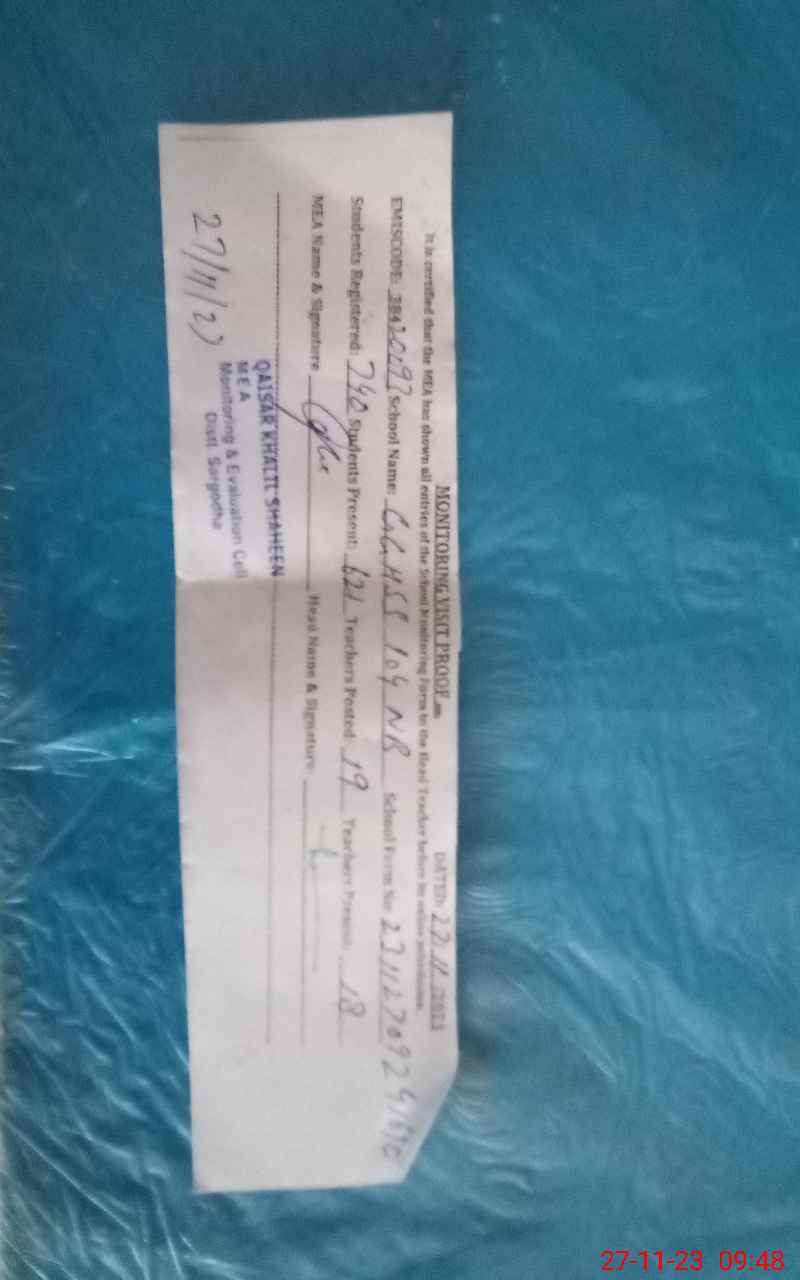 MONITORING VISIT PROOF DATED: 27.11.2023
It is certified that the MEA has shown all entries of the School Monitoring Form to the Head Teacher before its online submission.
EMISCODE: 38420197 School Name: GGHSS 104 NB School Form No: 231127092
Students Registered: 740 Students Present: 621 Teachers Posted: 19 Teachers Present: 18
MEA Name & Signature Head Name & Signature:
QAISAR KHALIL SHAHEEN
MEA
Monitoring & Evaluation Cell
Distt. Sargodha
27/11/23
27-11-23 09:48